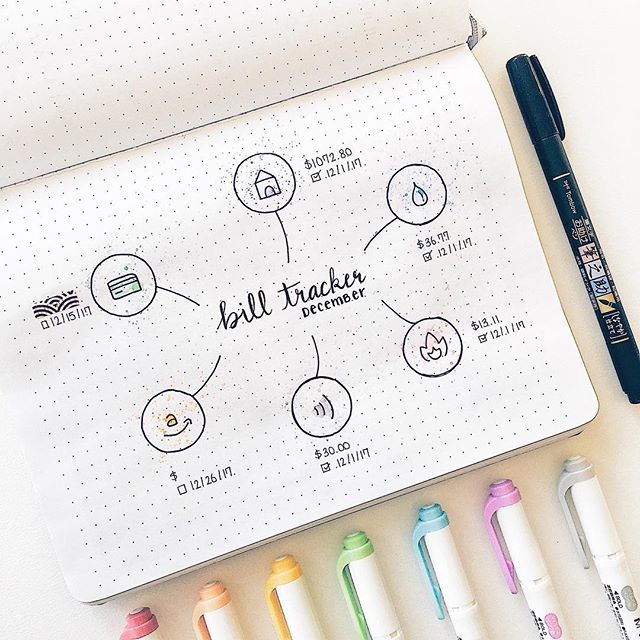 $1072.80
12/1/17.
$36.77
12/1/17.
bill tracker
DECEMBER
12/15/17
$13.11.
12/1/17
$30.00
12/1/17.
$
12/26/17.
a
Tombow